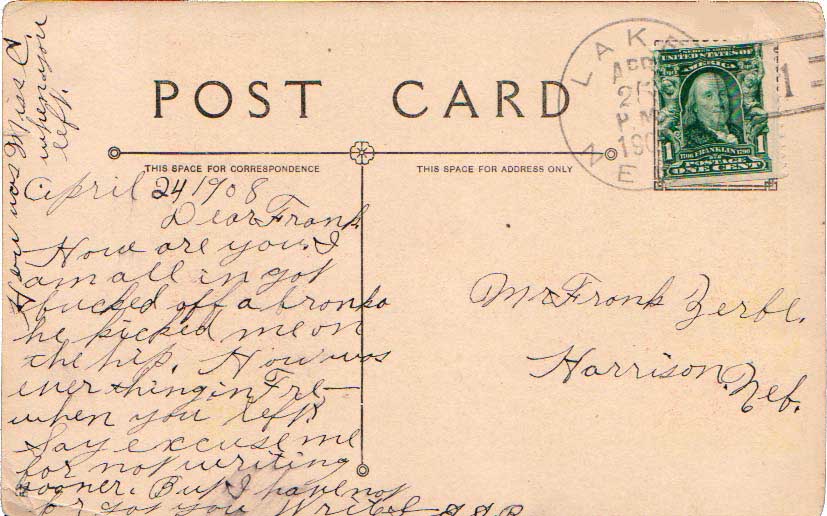 How was Miss C
when you
left.
POST CARD
THIS SPACE FOR CORRESPONDENCE
THIS SPACE FOR ADDRESS ONLY
LAKE
APR
2
P M
190
NE
1
SERIES 1902
UNITED STATES OF
AMERICA
1 1
1706 FRANKLIN 1790
POSTAGE
ONE CENT
April 24 1908
Dear Frank
How are you. I
am all in got
bucked off a bronko
he kicked me on
the hip. How was
ever thing in Fre-
when you left.
Say excuse me
for not writing
sooner. But I have not
for got you Write
Mr Frank Zerbe.
Harrison. Neb.